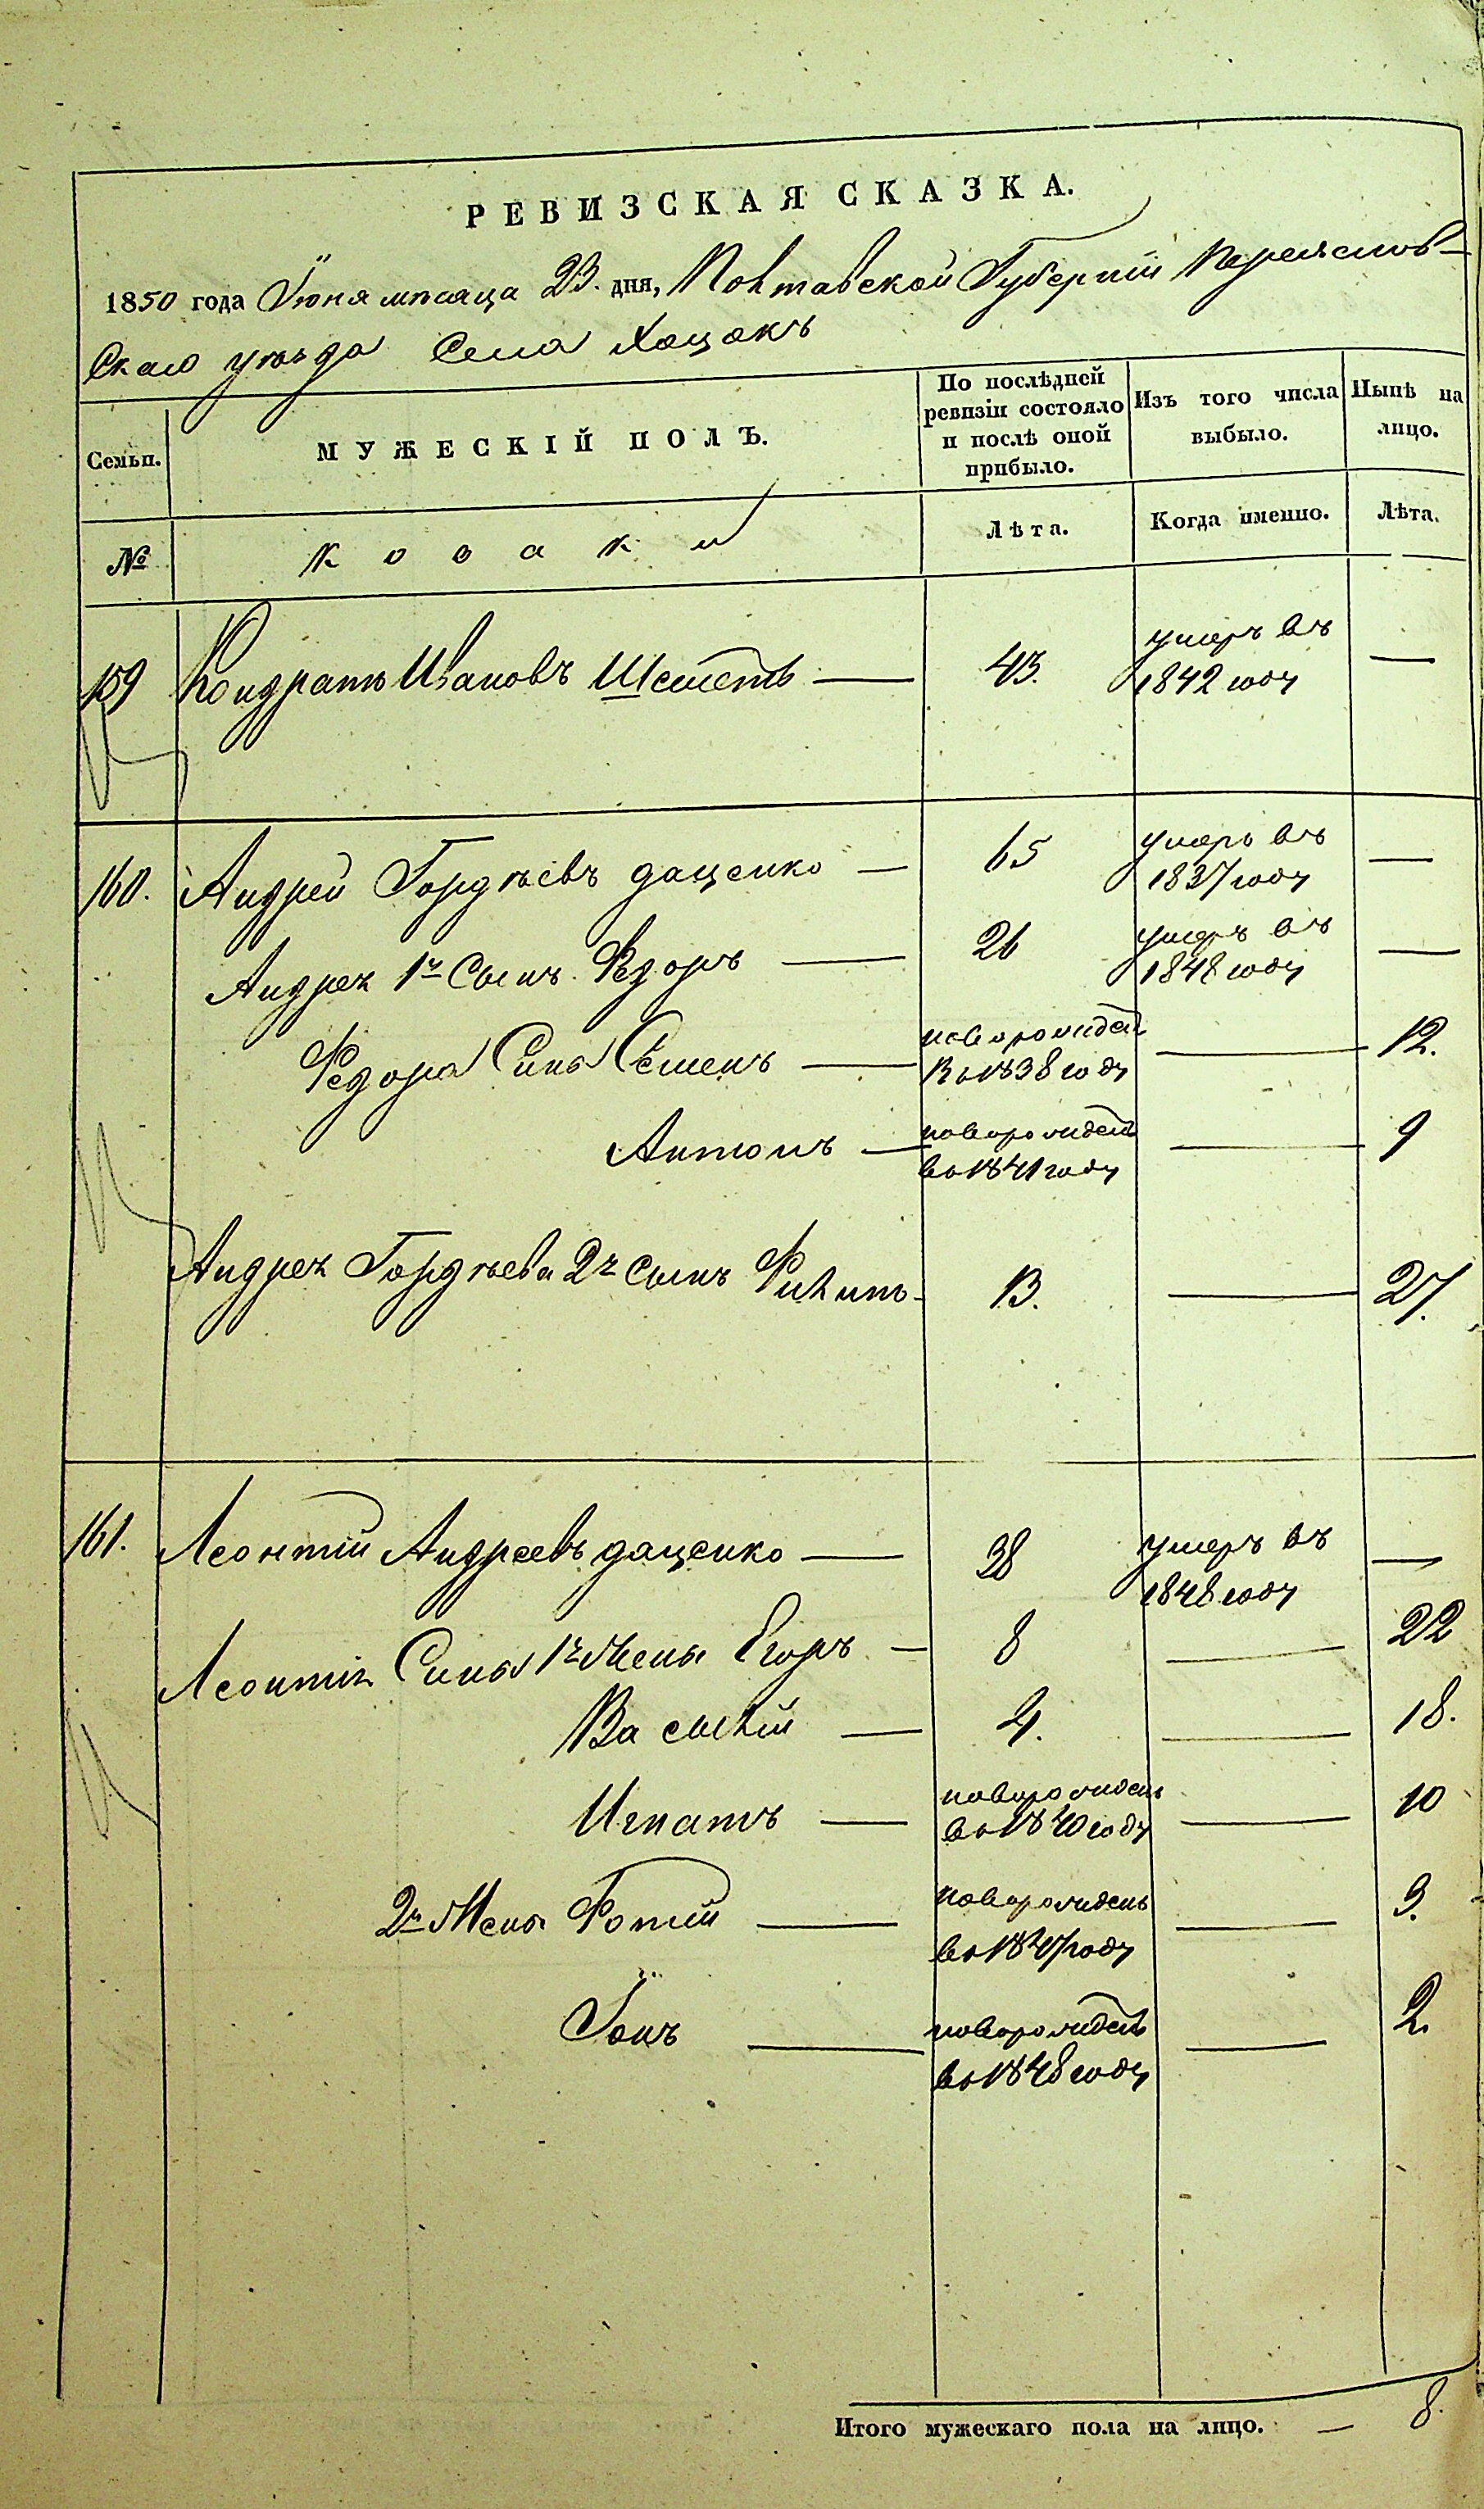 РЕВИЗСКАЯ СКАЗКА.
1850 года Іюня мѣсяца 23. дня, Полтавской Губерніи Переяслов-
Скаго уѣзда Села Хоцокъ
Семьи.
МУЖЕСКІЙ ПОЛЪ.
По послѣдней ревизіи состояло и послѣ оной прибыло.
Изъ того числа выбыло.
Нынѣ на лицо.
№
козаки
Лѣта.
Когда именно.
Лѣта.
159 Кондратъ Ивановъ — 43. умеръ въ 1842 году —
160. Андрей Гордѣевъ даценко — 65 умеръ въ 1837 году —
Андрея 1й Сынъ Федоръ — 26 умеръ въ 1848 году —
Федора Сина Семенъ — новорожден во 1838 году — 12.
Антонъ — новорожден во 1841 году — 9
Андрея Гордѣева 2й сынъ Филипъ — 13. — 27.
161. Леонтій Андреевъ даценко — 38 умеръ въ 1848 году —
Леонтія Сины 1й Жены Егоръ — 8 — 22
Василій — 4. — 18.
Игнатъ — новорожденъ во 1840 году — 10
2й Жены Фотій — новорожденъ во 1847 году — 3.
Іонъ — новорожден во 1848 году — 2.
Итого мужескаго пола на лицо. — 8.